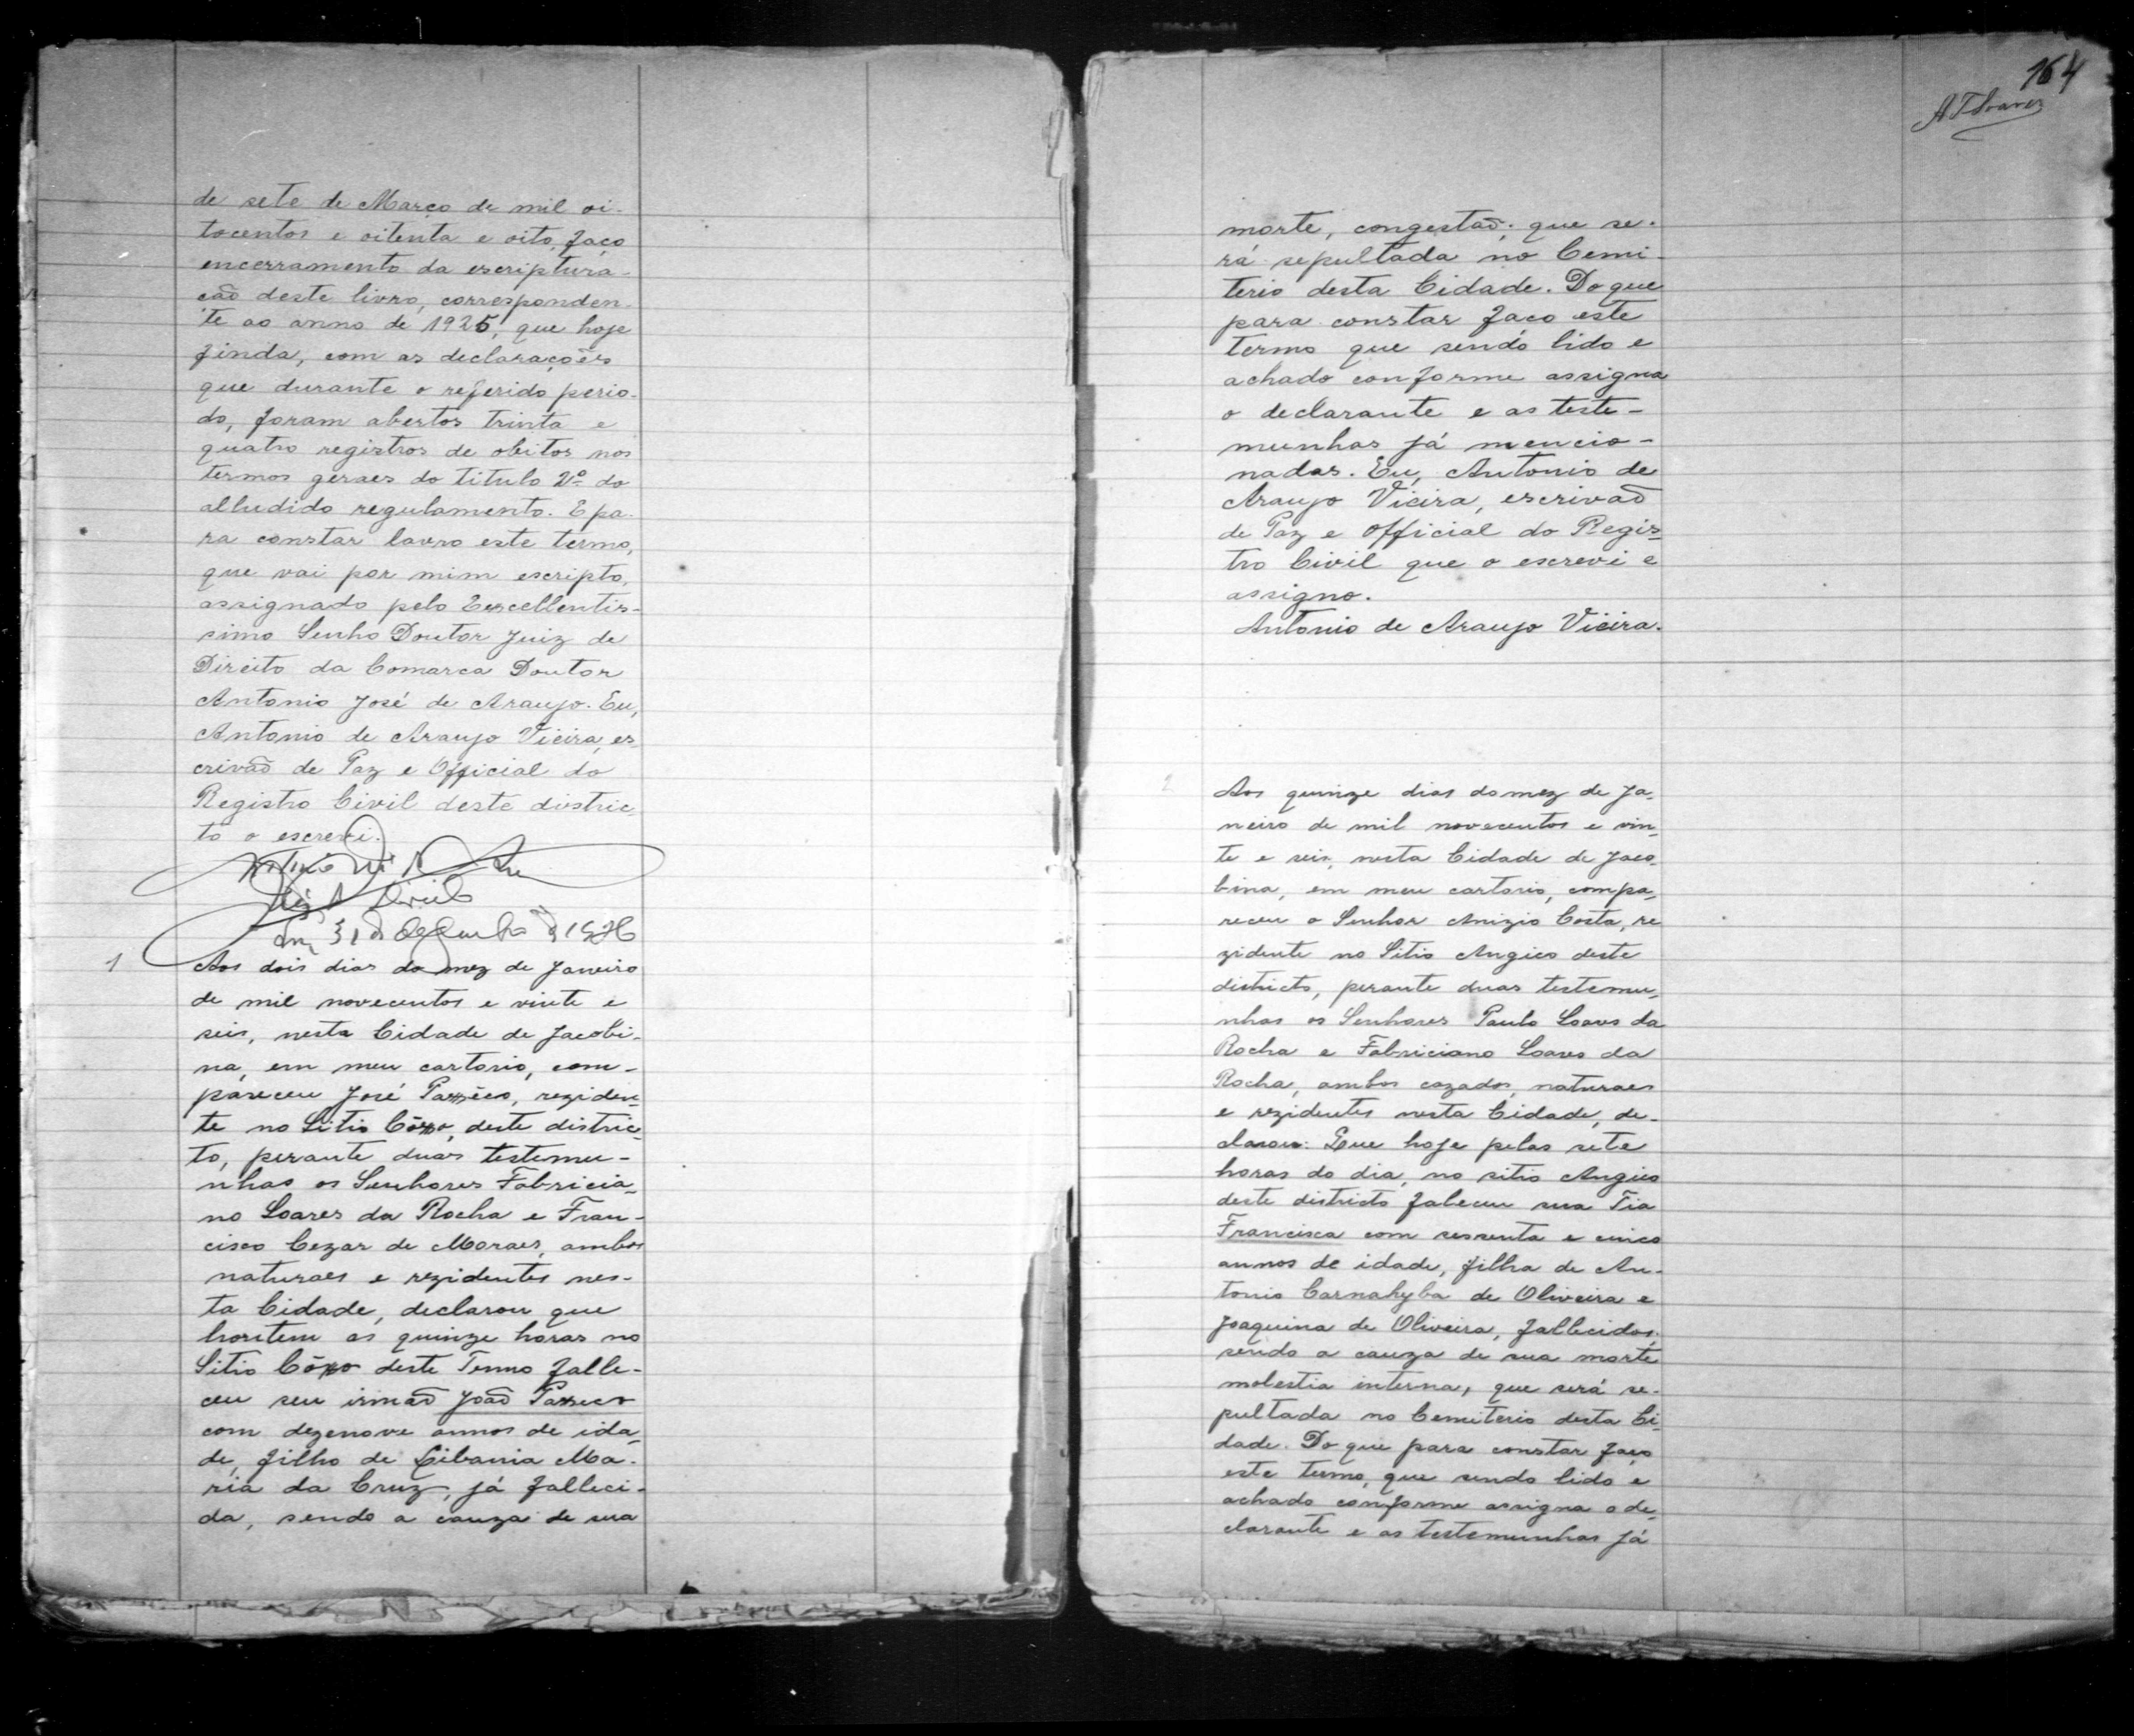 de sete de Março de mil oi-
tocentos e oitenta e oito, faço
encerramento da escriptura-
ção deste livro, corresponden-
te ao anno de 1925, que hoje
finda, com as declarações
que durante o referido perio-
do, foram abertos trinta e
quatro registros de obitos nos
termos geraes do titulo 2º do
alludido regulamento. E pa-
ra constar lavro este termo,
que vai por mim escripto,
assignado pelo Excellentis-
simo Senho Doutor Juiz de
Direito da Comarca Doutor
Antonio José de Araujo. Eu,
Antonio de Araujo Vieira, es-
crivaõ de Paz e Official do
Registro Civil deste distric-
to o escrevi.
31 de Dezembro
1
Aos dois dias do mez de Janeiro
de mil novecentos e vinte e
seis, nesta Cidade de Jacobi-
na, em meu cartorio, com-
pareceu José, reziden-
te no Sitio, deste distric-
to, perante duas testemu-
nhas os Senhores Fabricia-
no Soares da Rocha e Fran-
cisco Cezar de Moraes, ambos
naturaes e rezidentes nes-
ta Cidade, declarou que
hontem as quinze horas no
Sitio deste Termo falle-
ceu seu irmaõ Joaõ
com dezenove annos de ida-
de, filho de Libania Ma-
ria da Cruz, já falleci-
da, sendo a cauza de sua
164
A T Soares
morte, congestaõ; que se-
rá sepultada no Cemi-
terio desta Cidade. Do que
para constar faco este
termo que sendo lido e
achado conforme assigna
o declarante e as teste-
munhas já mencio-
nadas. Eu, Antonio de
Araujo Vieira, escrivaõ
de Paz e Official do Regis-
tro Civil que o escrevi e
assigno.
Antonio de Araujo Vieira.
2
Aos quinze dias do mez de Ja-
neiro de mil novecentos e vin-
te e seis, nesta Cidade de Jaco-
bina, em meu cartorio, compa-
receu o Senhor Anizio Costa, re
zidente no Sitio Angico deste
districto, perante duas testemu-
nhas os Senhores Paulo Soares da
Rocha e Fabriciano Soares da
Rocha, ambos cazados, naturaes
e rezidentes nesta Cidade, de-
clarou: Que hoje pelas sete
horas do dia, no sitio Angico
deste districto faleceu sua Tia
Francisca com sessenta e cinco
annos de idade, filha de An-
tonio Carnahyba de Oliveira e
Joaquina de Oliveira, fallecidos,
sendo a cauza de sua morte
molestia interna, que será se-
pultada no Cemiterio desta Ci-
dade. Do que para constar faço
este termo, que sendo lido e
achado conforme assigna o de-
clarante e as testemunhas já